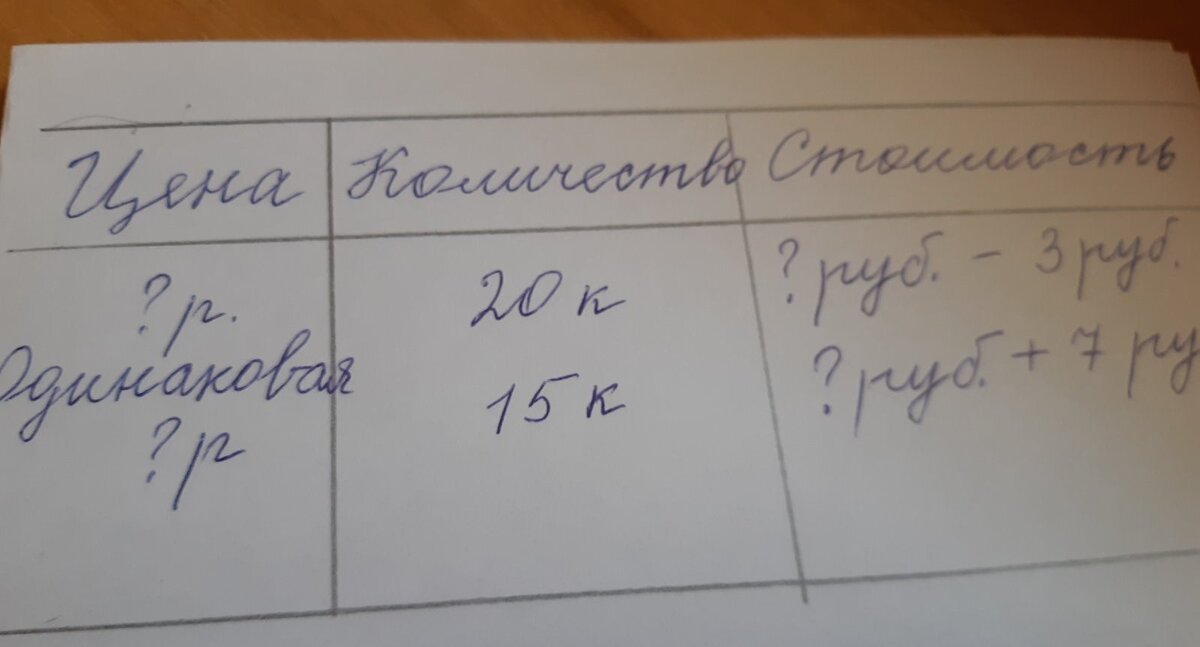 Цена Количество Стоимость
?р. 20 к ?руб. - 3 руб.
Одинаковая
?р 15 к ?руб. + 7 ру